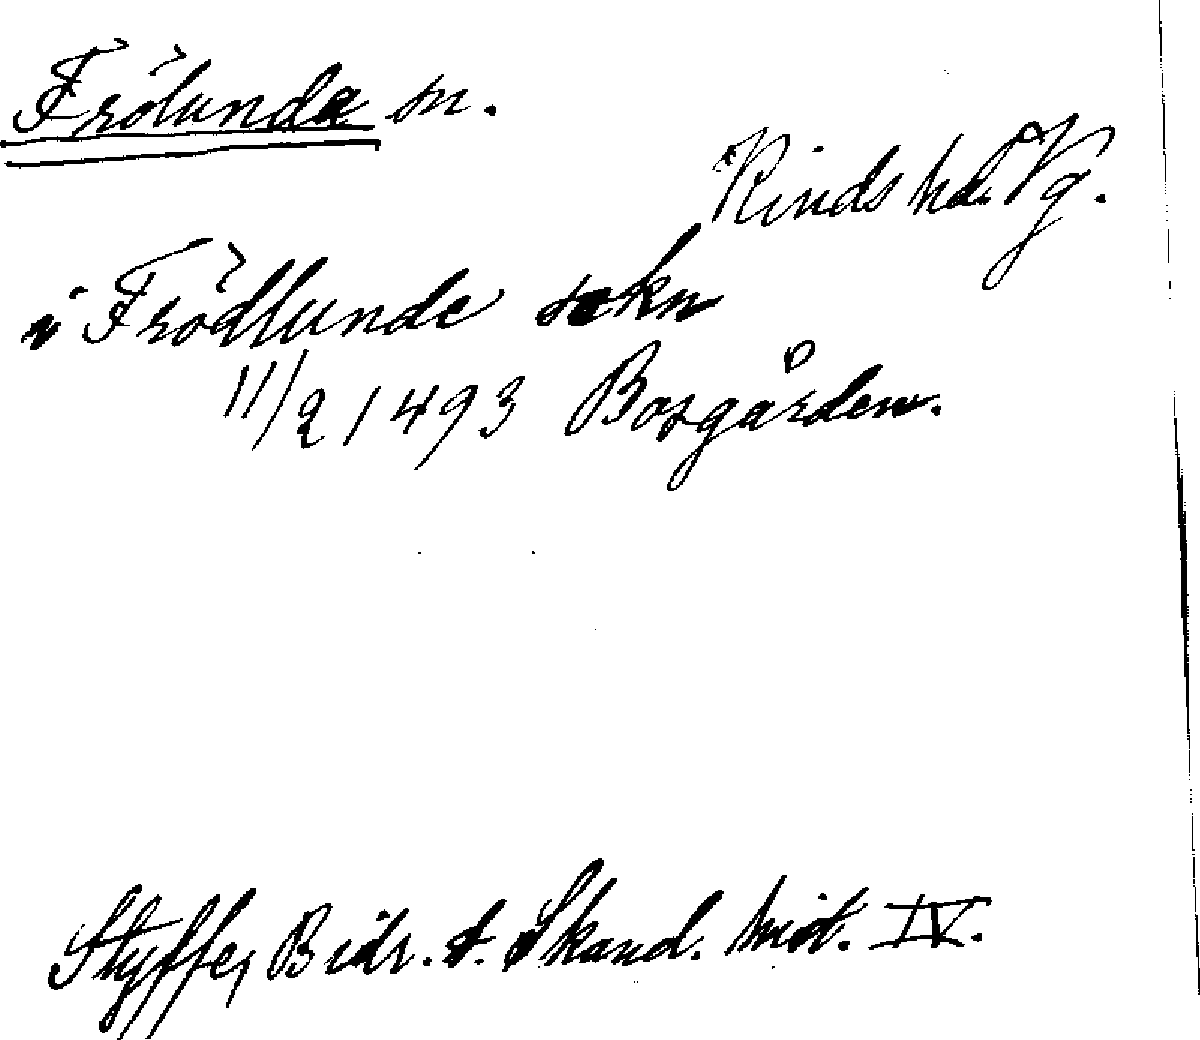 Frölunda sn.
Kinds hd. Vg.
i Frödlunde sokn
11/2 1493 Bosgården.
Styffe, Bidr. t. Skand. hist. IV.